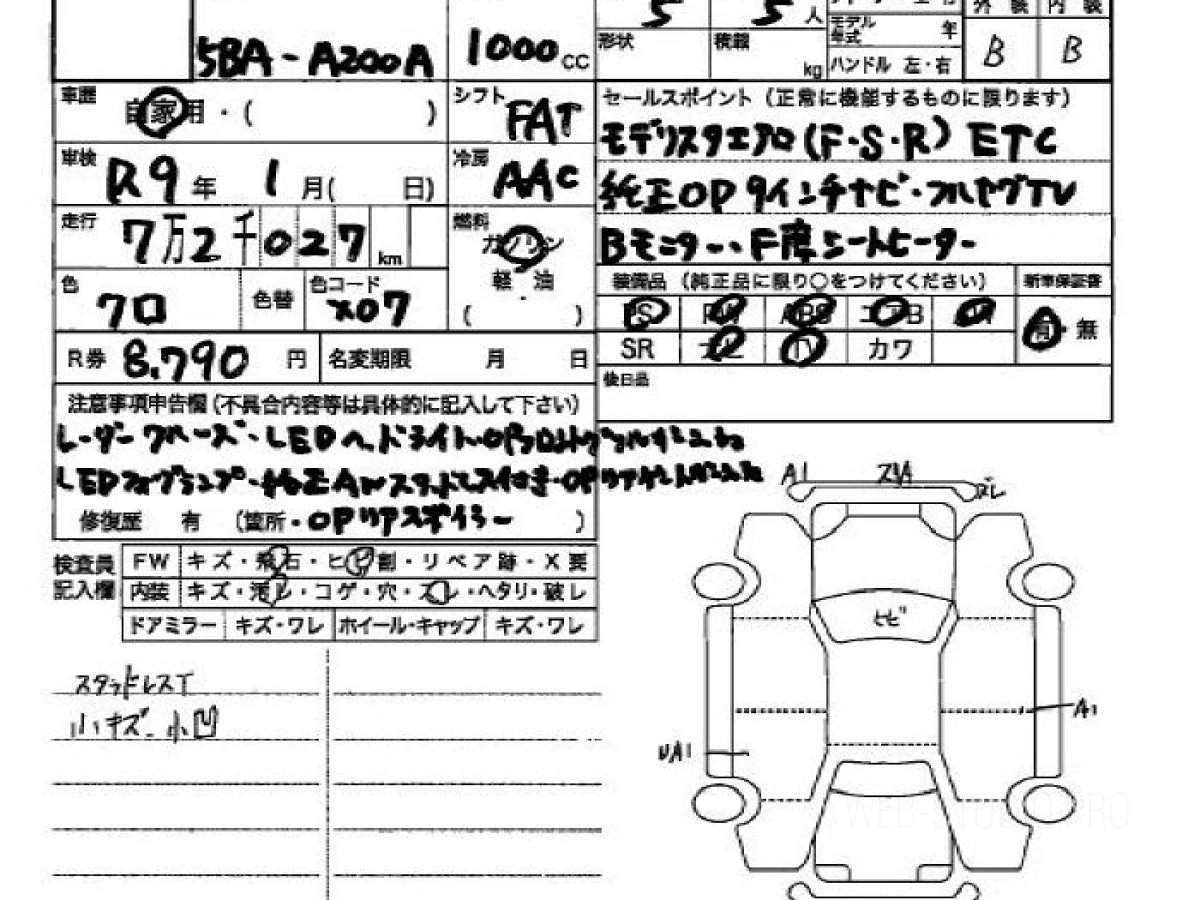 5 5人
外装 内装
5BA-A200A 1000cc 形状 積載 kg モデル年式 年 ハンドル 左・右 B B
車歴 自家用・( ) シフト FAT セールスポイント(正常に機能するものに限ります)
モデリスタエアロ(F・S・R) ETC
車検 R9年 1月( 日) 冷房 AAC
純正OP 9インチナビ・フルセグTV
走行 7万2千027km 燃料 ガソリン 軽・油 ( )
Bモニター・F席シートヒーター
色 クロ 色替 色コード X07
装備品(純正品に限り○をつけてください) 新車保証書
PS PW ABS エアB AW 有・無
SR ナビ TV カワ
R券 8,790円 名変期限 月 日
後日品
注意事項申告欄(不具合内容等は具体的に記入して下さい)
LEDヘッドライト・OPフロントグリルガーニッシュ
LEDフォグランプ・純正AWスタッドレス付き・OPリアゲートガーニッシュ
修復歴 有 (箇所・OPリアスポイラー )
検査員記入欄 FW キズ・飛石・ヒビ割・リペア跡・X要
内装 キズ・汚レ・コゲ・穴・スレ・ヘタリ・破レ
ドアミラー キズ・ワレ ホイール・キャップ キズ・ワレ
スタッドレスT
小キズ・小凹
A1 ズレ
ヒビ
A1
UA1
WEB-STUDIO.PRO